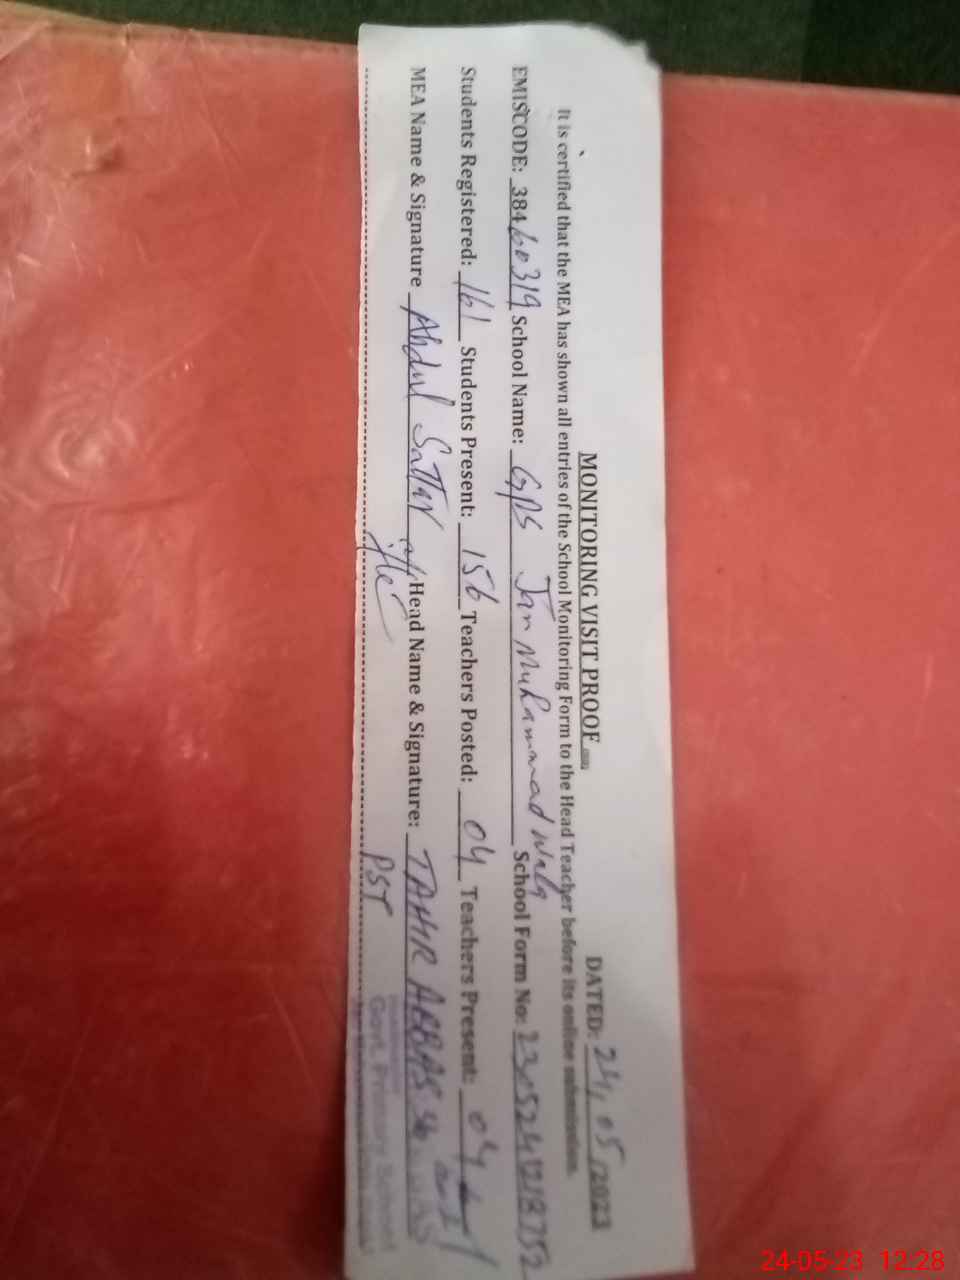 MONITORING VISIT PROOF
DATED: 24,05/2023
It is certified that the MEA has shown all entries of the School Monitoring Form to the Head Teacher before its online submission.
EMISCODE: 38460319 School Name: GPS Jan Muhammad Wala School Form No: 230524121873752
Students Registered: 161 Students Present: 156 Teachers Posted: 04 Teachers Present: 04
MEA Name & Signature Abdul Sattar Head Name & Signature: TAHIR ABBAS
PST
Govt. Primary School
24-05-23 12:28